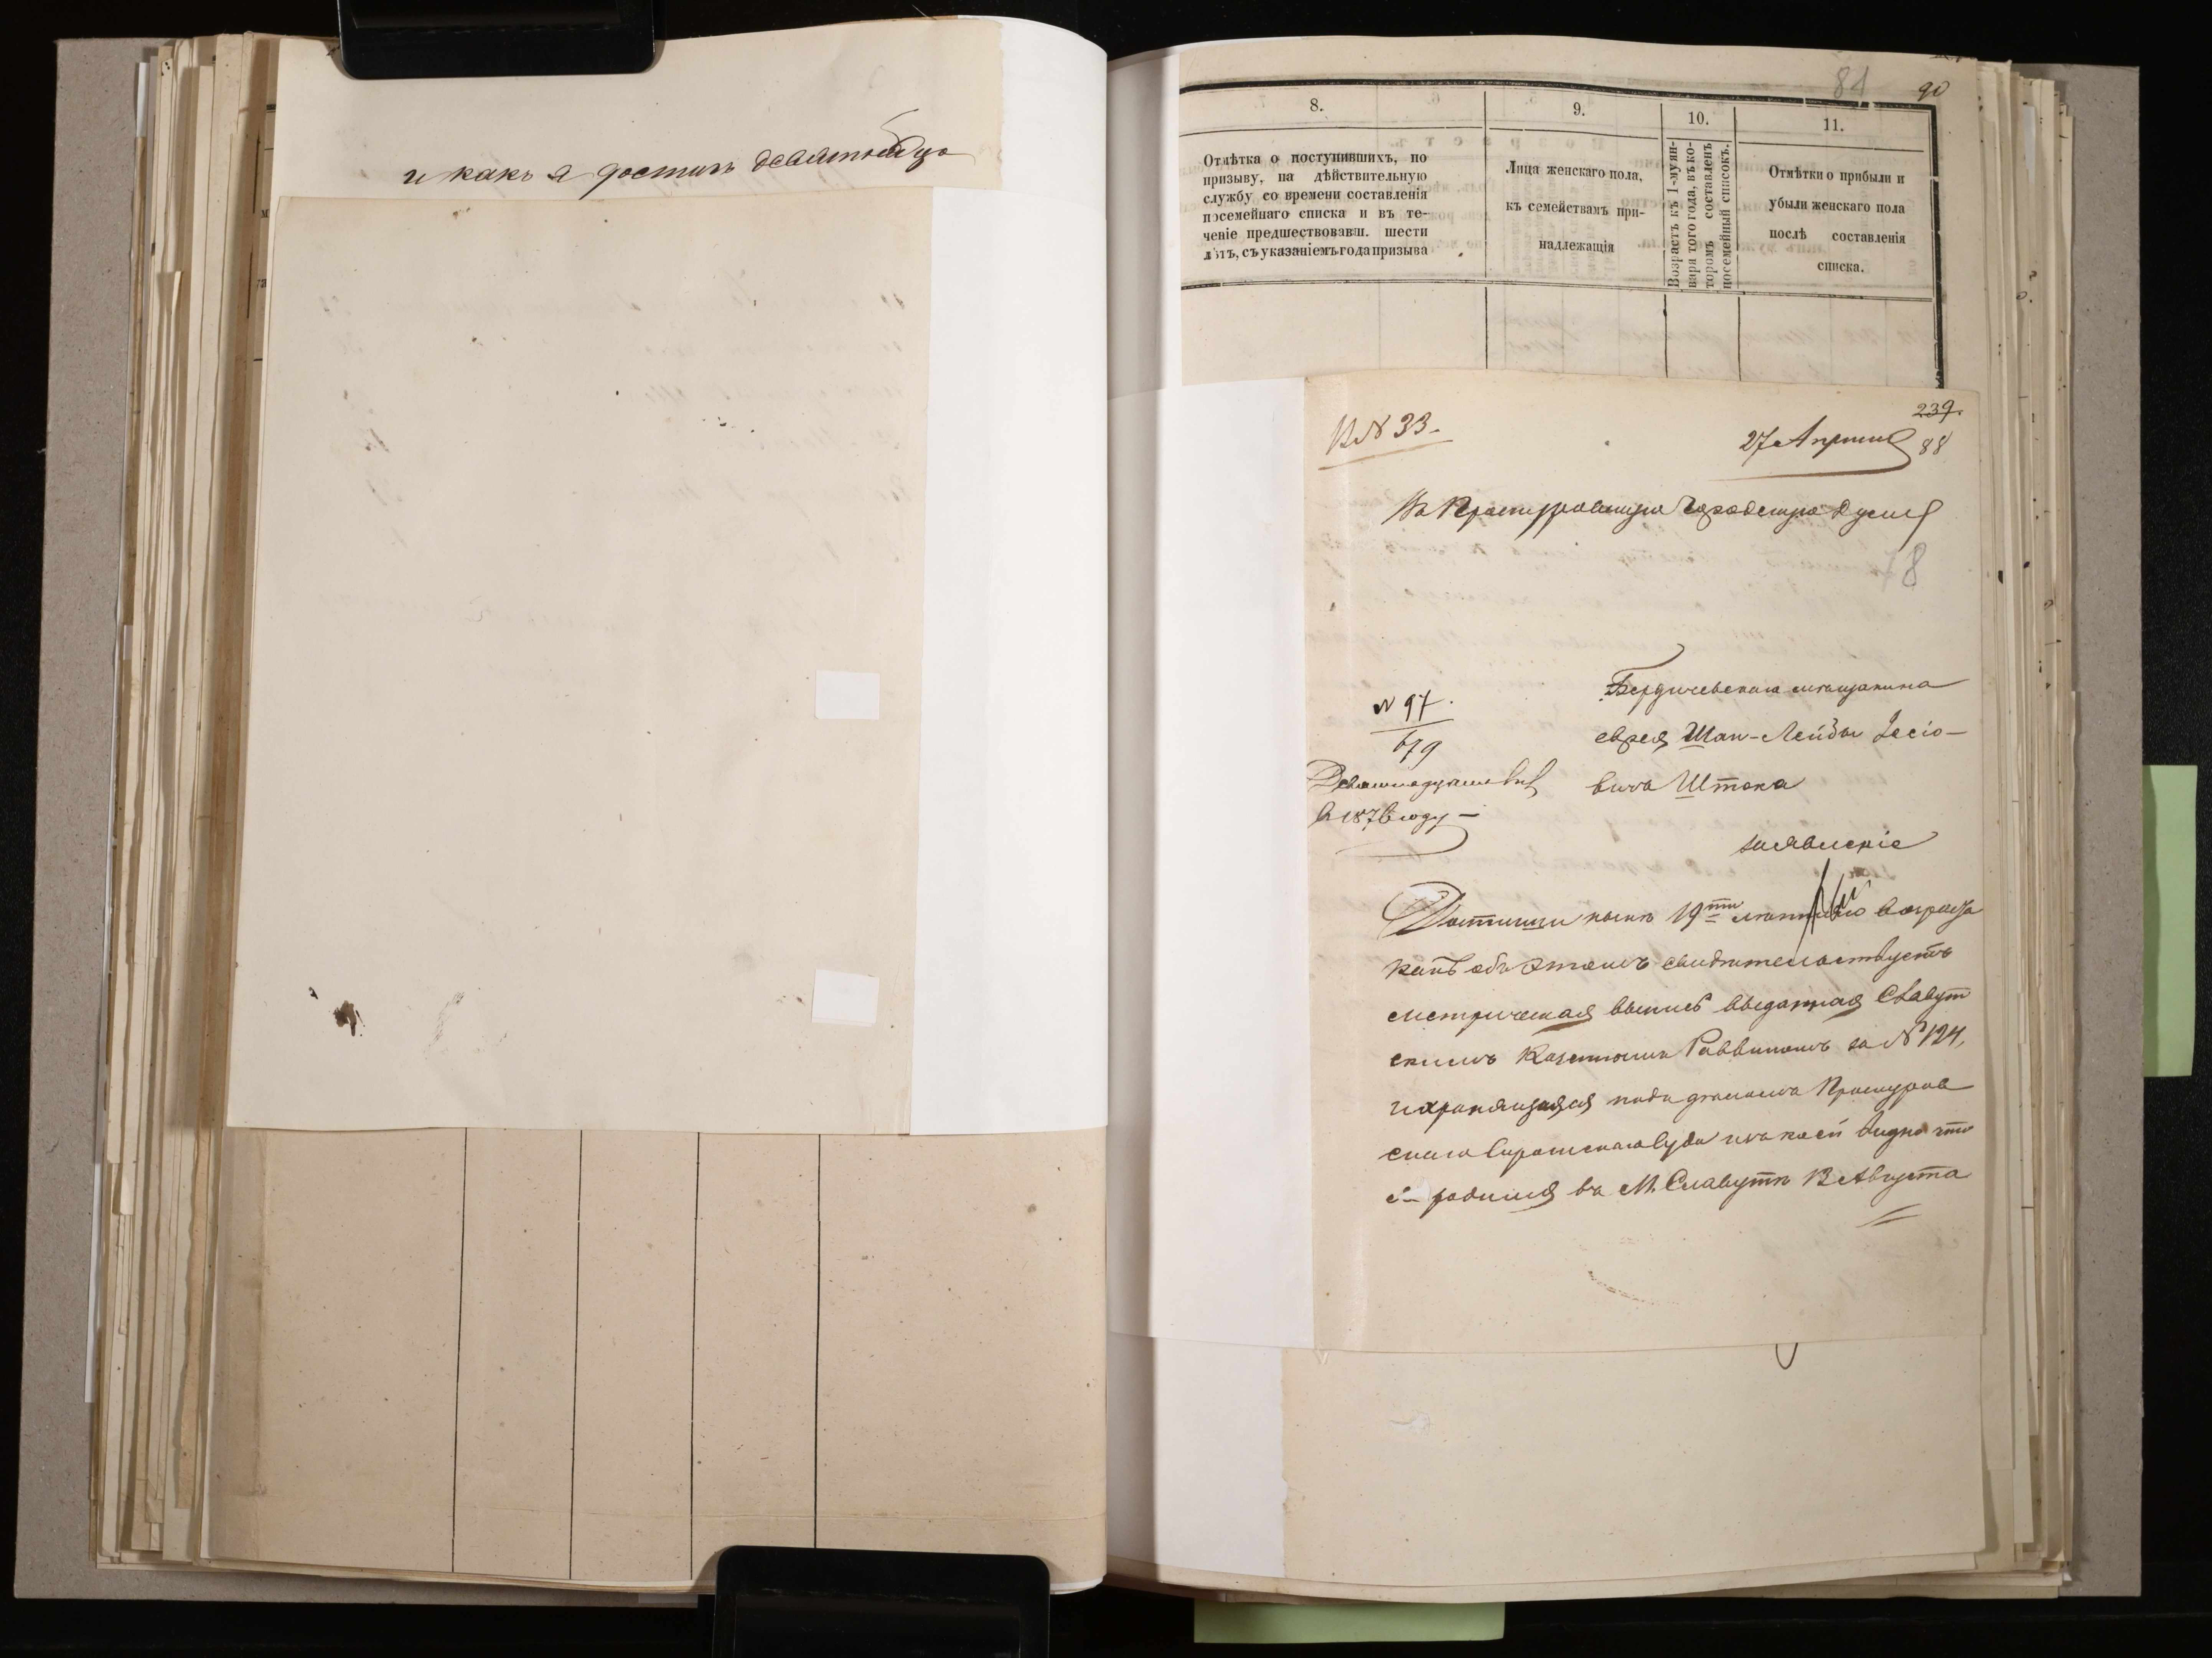 и какъ я достигъ девятнадца
84
90
8.
9.
10.
11.
Отмѣтка о поступившихъ, по
призыву, на дѣйствительную
службу со времени составленія
посемейнаго списка и въ те-
ченіе предшествовавш. шести
лѣтъ, съ указаніемъ года призыва
Лица женскаго пола,
къ семействамъ при-
надлежащія
Возрастъ къ 1-му ян-
варя того года, въ ко-
торомъ составленъ
посемейный списокъ.
Отмѣтки о прибыли и
убыли женскаго пола
послѣ составленія
списка.
239.
В № 33.
27 Апрѣля
88
Въ Проскуровскую Городскую Думу
78
№ 97.
679
Бердичевскаго мѣщанина
еврея Шая-Лейбы Іосіо-
вича Штока
в 1876 году
заявленіе
Достигши нынѣ 19ти лѣтняго возраста
какъ объ этомъ свидѣтельствуетъ
метрическая выпись выданная Славут
скимъ Казеннымъ Раввиномъ за № 124,
и хранящаяся при дѣлахъ Проскуров
скаго Сиротскаго Суда изъ коей видно что
я родился въ М. Славутѣ 13 Августа